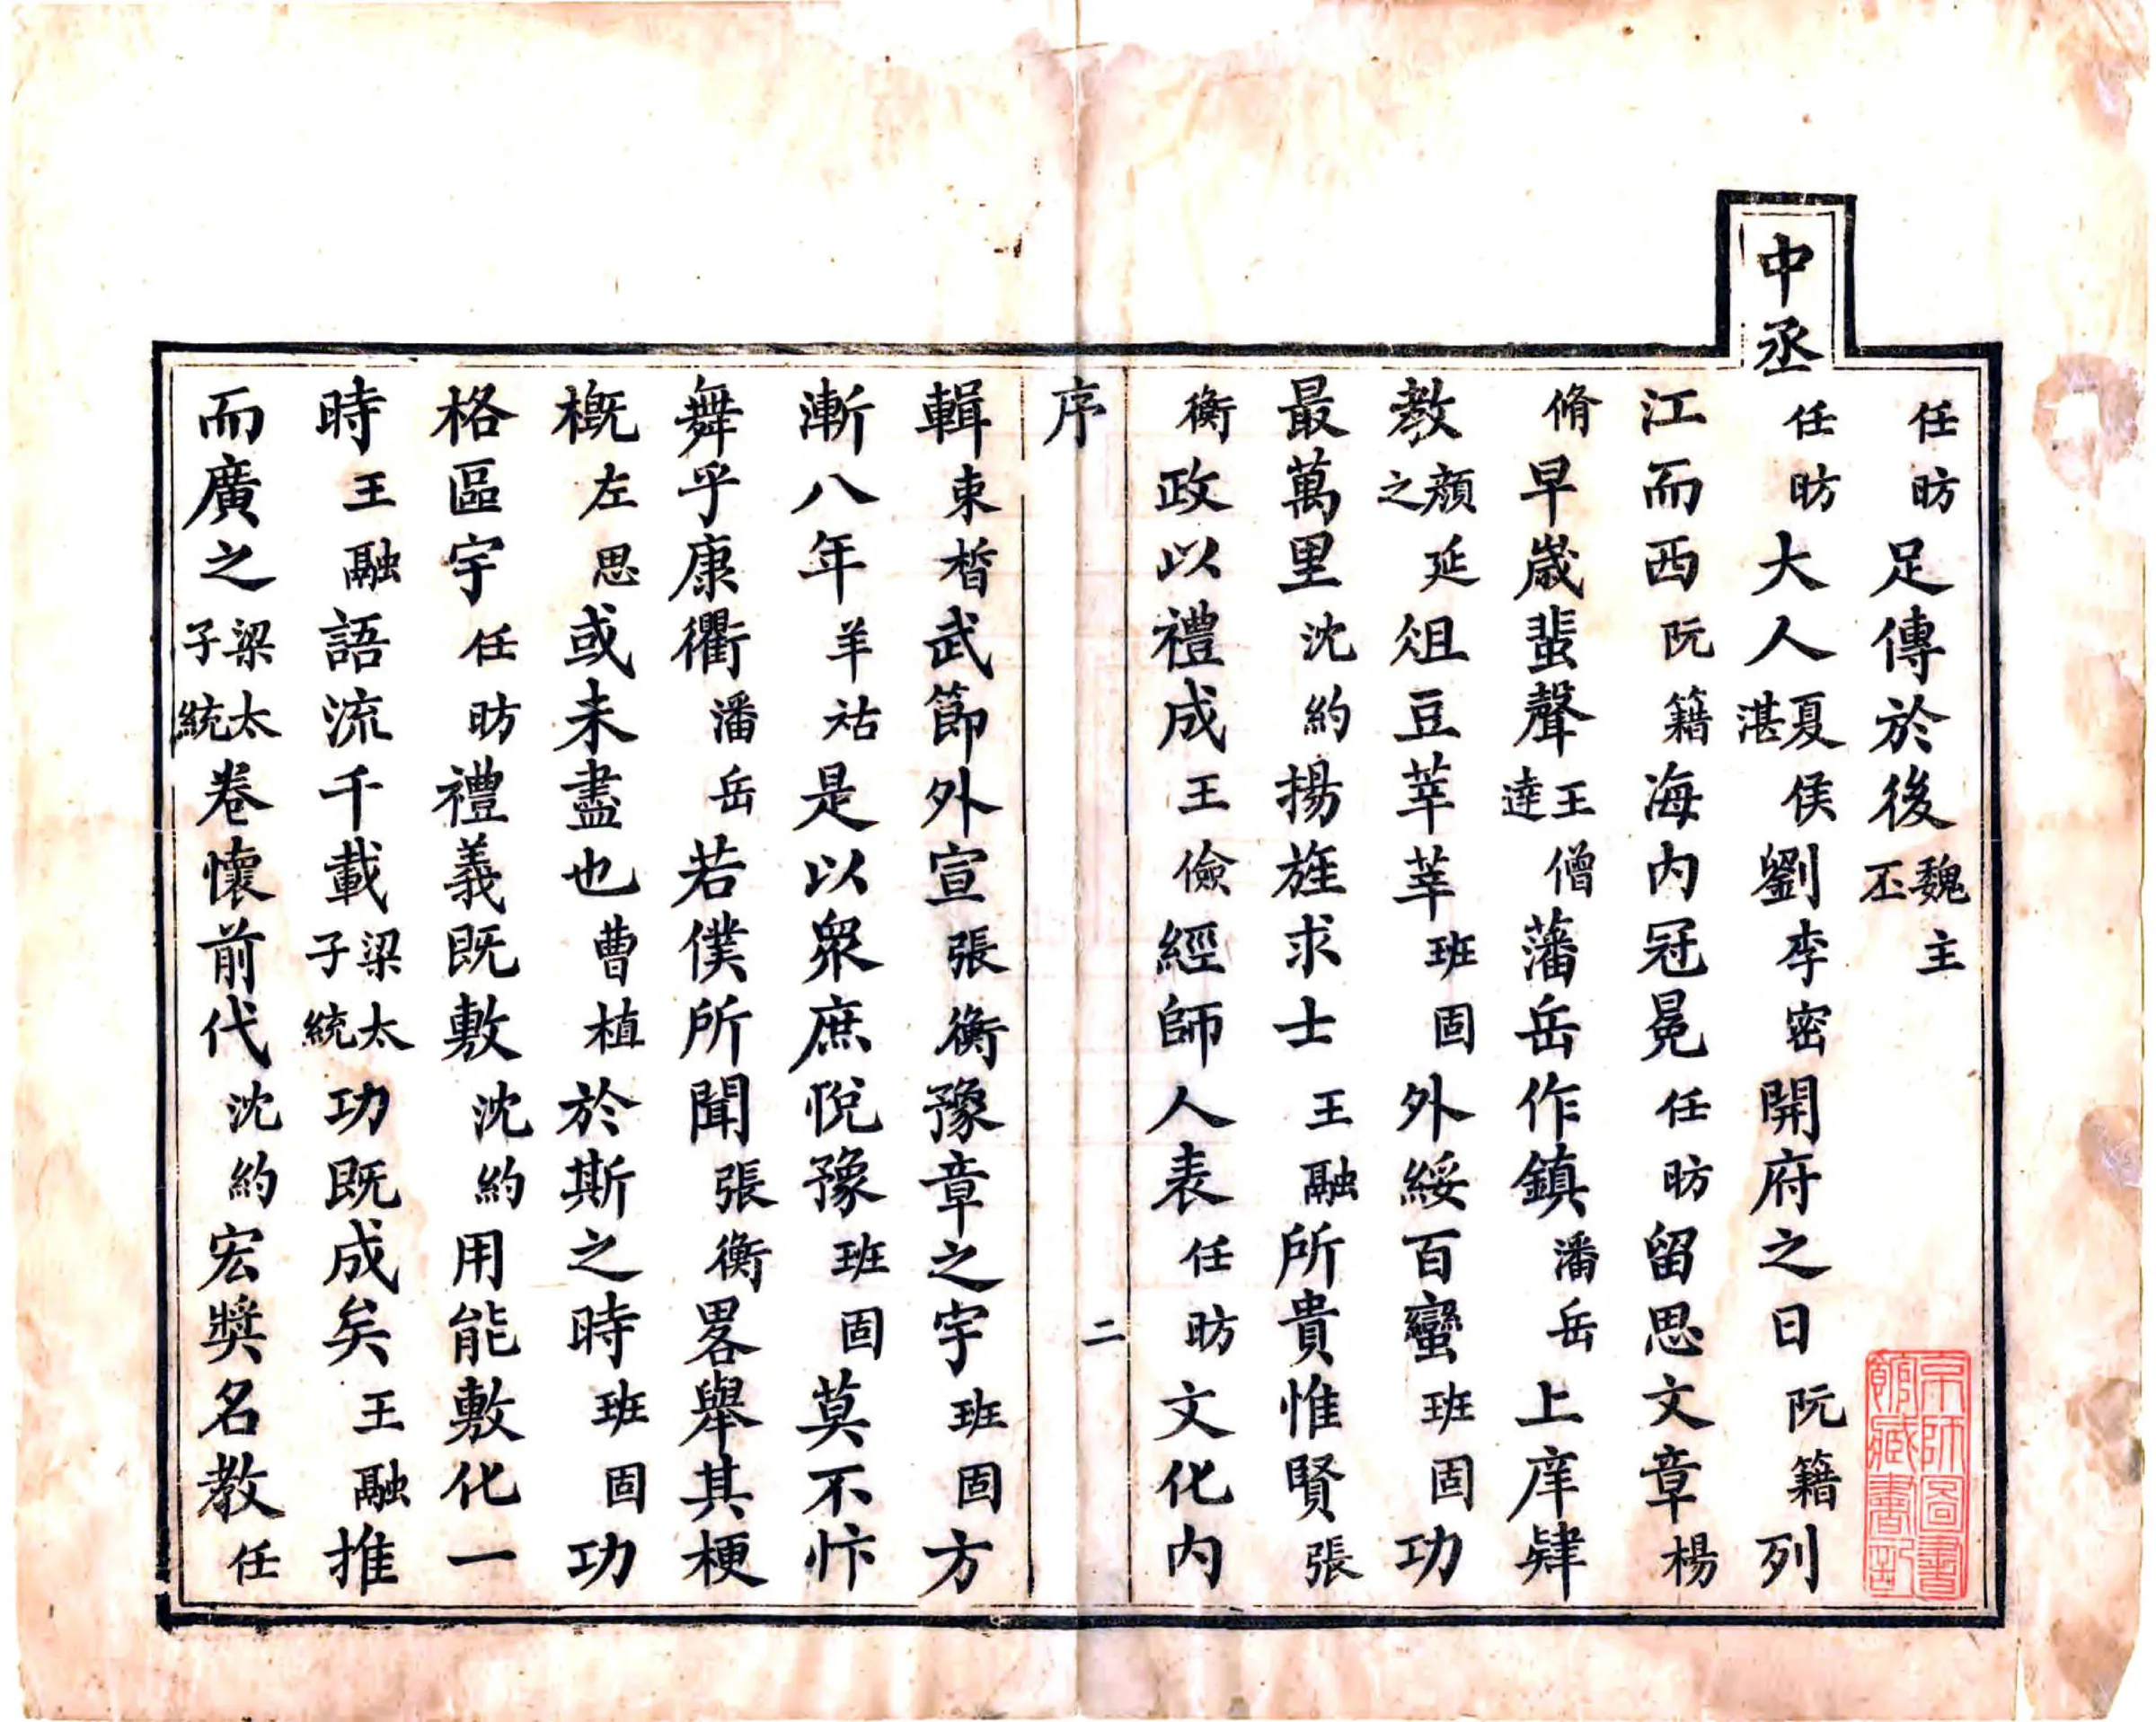 任昉足傳於後魏主丕
中丞任昉大人夏侯湛劉李密開府之日阮籍列
江而西阮籍海内冠冕任昉留思文章楊
脩早歲蜚聲王僧達藩岳作鎮潘岳上庠肄
教顏延之俎豆莘莘班固外綏百蠻班固功
最萬里沈約揚旌求士王融所貴惟賢張
衡政以禮成王儉經師人表任昉文化内
序 二
輯束晳武節外宣張衡豫章之宇班固方
漸八年羊祜是以眾庶悅豫班固莫不忭
舞乎康衢潘岳若僕所聞張衡畧舉其梗
概左思或未盡也曹植於斯之時班固功
格區宇任昉禮義既敷沈約用能敷化一
時王融語流千載梁太子統功既成矣王融推
而廣之梁太子統卷懷前代沈約宏奬名教任
京師圖書
館藏書記